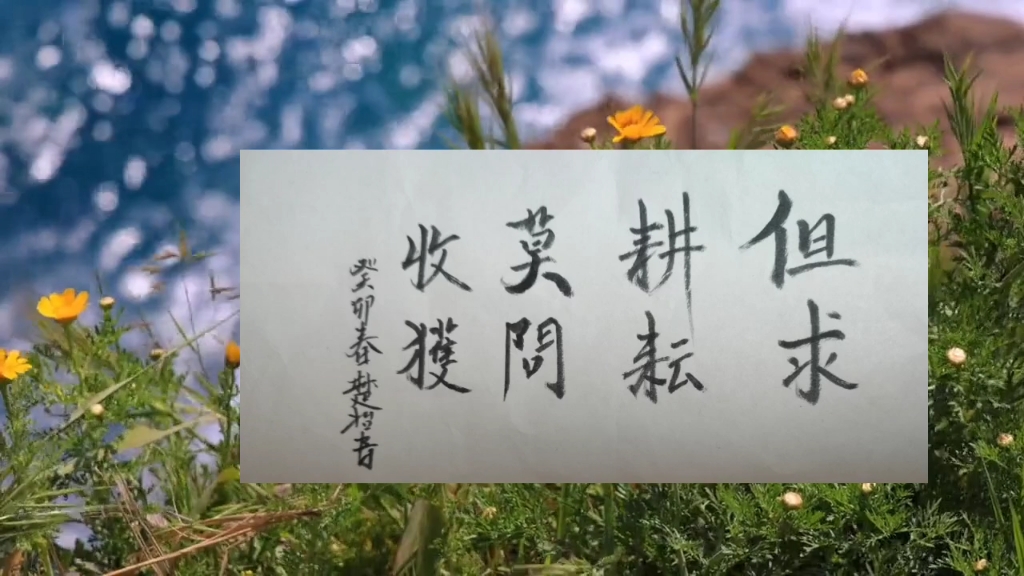 但求
耕耘
莫問
收獲
癸卯春楚